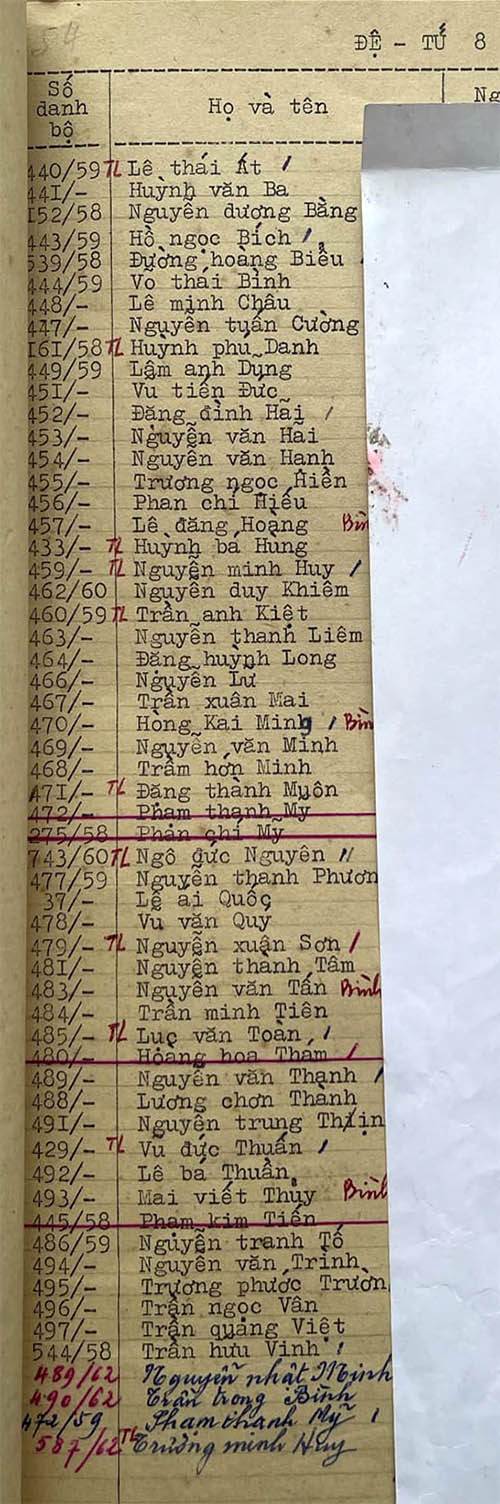 54
ĐỆ - TỨ 8
Số danh bộ Họ và tên Ng
440/59 TL Lê thái Ất /
441/- Huỳnh văn Ba
152/58 Nguyễn dương Bằng
443/59 Hồ ngọc Bích /
539/58 Đường hoàng Biêu
444/59 Vo thái Bình
448/- Lê minh Châu
447/- Nguyễn tuấn Cường
161/58 TL Huỳnh phú Danh
449/59 Lâm anh Dũng
451/- Vu tiến Đức
452/- Đặng đình Hãi /
453/- Nguyễn văn Hãi
454/- Nguyễn văn Hạnh
455/- Trương ngọc Hiền
456/- Phan chí Hiếu
457/- Lê đăng Hoàng Bìn
433/- TL Huỳnh bá Hùng
459/- TL Nguyễn minh Huy /
462/60 Nguyễn duy Khiêm
460/59 TL Trần anh Kiệt
463/- Nguyễn thanh Liêm
464/- Đặng huỳnh Long
466/- Nguyễn Lư
467/- Trần xuân Mai
470/- Hòng Kai Minh / Bìn
469/- Nguyễn văn Minh
468/- Trầm hơn Minh
471/- TL Đặng thành Muôn
472/- Phạm thanh Mỹ
275/58 Phan chí Mỹ
743/60 TL Ngô đức Nguyên //
477/59 Nguyễn thanh Phươn
37/- Lê ai Quốc
478/- Vu văn Quy
479/- TL Nguyễn xuân Sơn /
481/- Nguyễn thành Tâm
483/- Nguyễn văn Tấn Bình
484/- Trần minh Tiên
485/- TL Lục văn Toàn /
480/- Hoàng hoa Thám /
489/- Nguyễn văn Thạnh /
488/- Lương chơn Thành
491/- Nguyễn trung Thịn
429/- TL Vũ đức Thuấn /
492/- Lê bá Thuần
493/- Mai viết Thụy Bình
445/58 Phạm kim Tiến
486/59 Nguyễn tranh Tố
494/- Nguyễn văn Trình
495/- Trương phước Trườn
496/- Trần ngọc Vân
497/- Trần quảng Việt
544/58 Trần hưu Vinh /
489/62 Nguyễn nhật Minh
490/62 Trần trọng Bình
472/59 Phạm thanh Mỹ /
587/62 TL Trương minh Huy